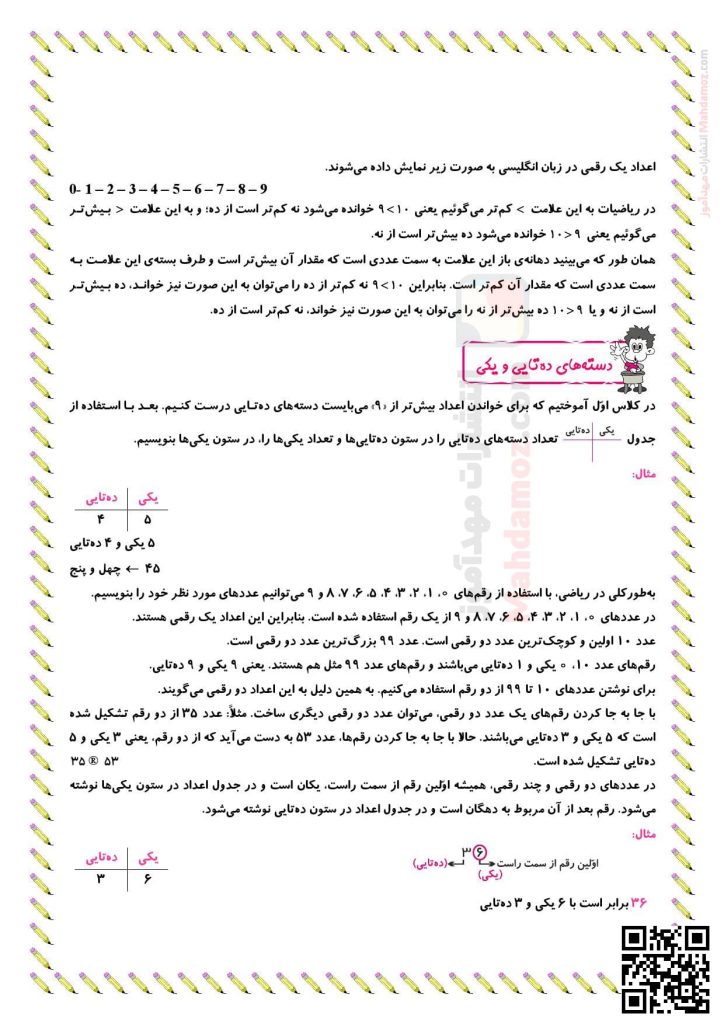 اعداد یک رقمی در زبان انگلیسی به صورت زیر نمایش داده می‌شوند.
0- 1 – 2 – 3 – 4 – 5 – 6 – 7 – 8 – 9
در ریاضیات به این علامت > کم‌تر می‌گوئیم یعنی ۱۰>۹ خوانده می‌شود نه کم‌تر است از ده؛ و به این علامت < بیش‌تر
می‌گوئیم یعنی ۹<۱۰ خوانده می‌شود ده بیش‌تر است از نه.
همان طور که می‌بینید دهانه‌ی باز این علامت به سمت عددی است که مقدار آن بیش‌تر است و طرف بسته‌ی این علامت به
سمت عددی است که مقدار آن کم‌تر است. بنابراین ۱۰>۹ نه کم‌تر از ده را می‌توان به این صورت نیز خواند، ده بیش‌تر
است از نه و یا ۹<۱۰ ده بیش‌تر از نه را می‌توان به این صورت نیز خواند، نه کم‌تر است از ده.
دسته‌های ده‌تایی و یکی
در کلاس اوّل آموختیم که برای خواندن اعداد بیش‌تر از «۹» می‌بایست دسته‌های ده‌تایی درست کنیم. بعد با استفاده از
جدول یکی ده‌تایی تعداد دسته‌های ده‌تایی را در ستون ده‌تایی‌ها و تعداد یکی‌ها را، در ستون یکی‌ها بنویسیم.
مثال:
یکی ده‌تایی
۵ ۴
۵ یکی و ۴ ده‌تایی
۴۵ ← چهل و پنج
به‌طورکلی در ریاضی، با استفاده از رقم‌های ۰، ۱، ۲، ۳، ۴، ۵، ۶، ۷، ۸ و ۹ می‌توانیم عددهای مورد نظر خود را بنویسیم.
در عددهای ۰، ۱، ۲، ۳، ۴، ۵، ۶، ۷، ۸ و ۹ از یک رقم استفاده شده است. بنابراین این اعداد یک رقمی هستند.
عدد ۱۰ اولین و کوچک‌ترین عدد دو رقمی است. عدد ۹۹ بزرگ‌ترین عدد دو رقمی است.
رقم‌های عدد ۱۰، ۰ یکی و ۱ ده‌تایی می‌باشند و رقم‌های عدد ۹۹ مثل هم هستند. یعنی ۹ یکی و ۹ ده‌تایی.
برای نوشتن عددهای ۱۰ تا ۹۹ از دو رقم استفاده می‌کنیم. به همین دلیل به این اعداد دو رقمی می‌گویند.
با جا به جا کردن رقم‌های یک عدد دو رقمی، می‌توان عدد دو رقمی دیگری ساخت. مثلاً: عدد ۳۵ از دو رقم تشکیل شده
است که ۵ یکی و ۳ ده‌تایی می‌باشند. حالا با جا به جا کردن رقم‌ها، عدد ۵۳ به دست می‌آید که از دو رقم، یعنی ۳ یکی و ۵
ده‌تایی تشکیل شده است. ۵۳ ® ۳۵
در عددهای دو رقمی و چند رقمی، همیشه اوّلین رقم از سمت راست، یکان است و در جدول اعداد در ستون یکی‌ها نوشته
می‌شود. رقم بعد از آن مربوط به دهگان است و در جدول اعداد در ستون ده‌تایی نوشته می‌شود.
مثال:
یکی ده‌تایی
۶ ۳
۳۶
اوّلین رقم از سمت راست (ده‌تایی)
(یکی)
۳۶ برابر است با ۶ یکی و ۳ ده‌تایی
انتشارات مهدآموز Mahdamoz.com
انتشارات مهدآموز
Mahdamoz.com